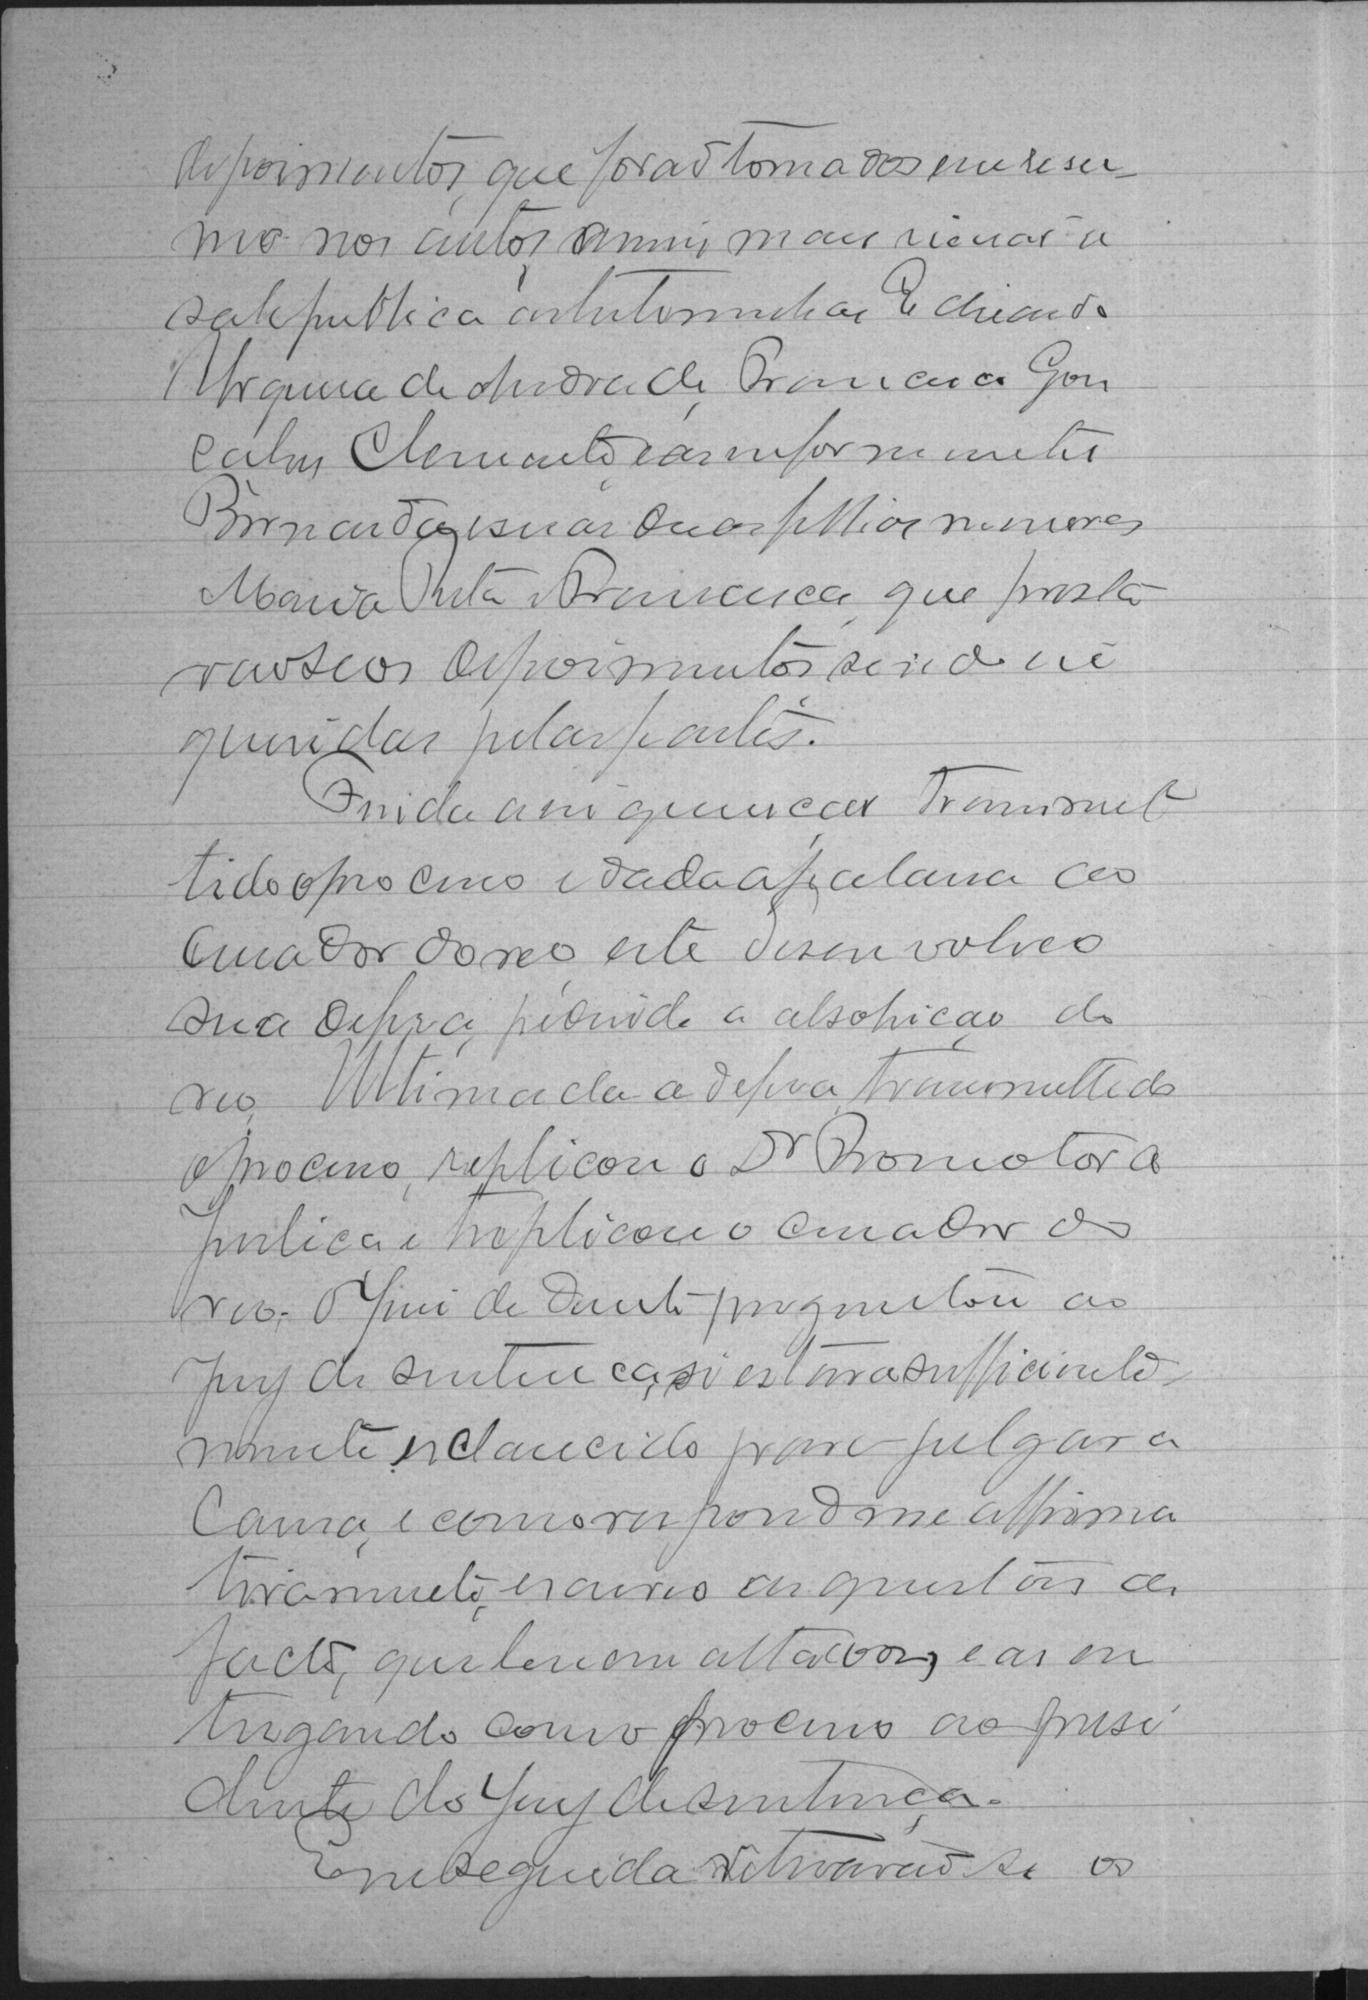 depoimentos, que forão tomados em resu-
mo nos autos, assim mais vierão a
sala publica as testemunhas Eduardo
de Andrade, Francisca Gon
çalves Clemente, e as informantes
Bernarda, e suas duas filhas menores
Maria Rita e Francisca, que presta
rão seos depoimentos sendo re
queridas pelas partes.
Finda a inquirição transmit
tido o processo e dada a palavra ao
Curador do reo este desenvolveo
sua defeza, pedindo a absolvição do
reo. Ultimada a defeza, transmittido
o processo, replicou o Dr Promotor a
Publica e treplicou o curador do
reo. O Juiz de Direito preguntou ao
Jury de sentença, si estava sufficiente-
mente esclarecido para julgar a
Causa, e como respondesse affirma
tivamente, escreveo as questões de
facto, que leu em alta voz, e as en
tregando com o processo ao presi
dente do Jury de sentença.
Em seguida retirarão se os